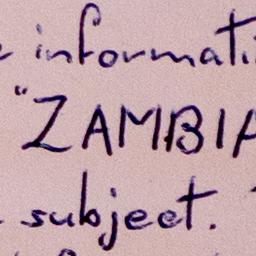 informati
"ZAMBIA
subject.